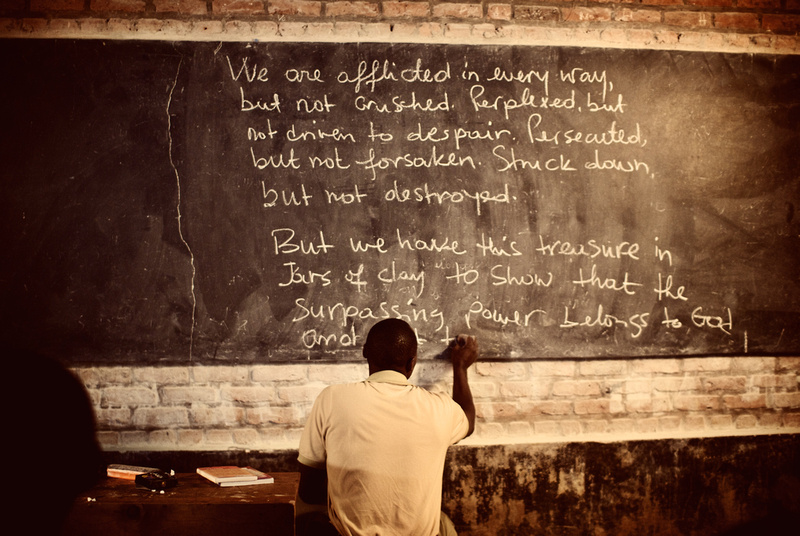 We are afflicted in every way,
but not crushed. Perplexed, but
not driven to despair. Persecuted,
but not forsaken. Struck down,
but not destroyed.
But we have this treasure in
Jars of clay to show that the
surpassing power belongs to God